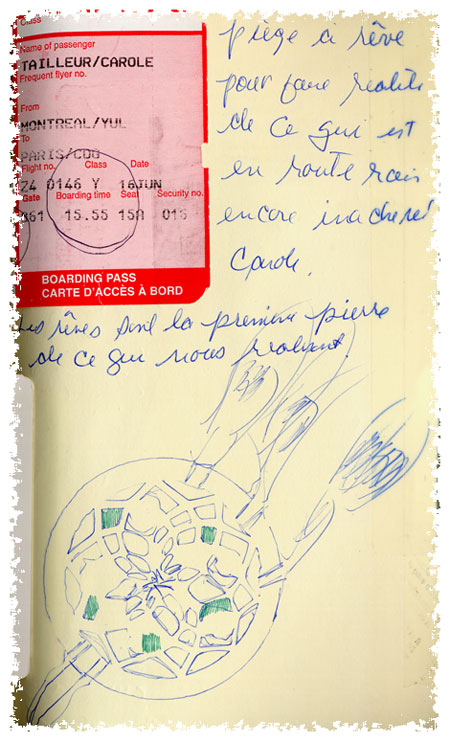 Class
Name of passenger
TAILLEUR/CAROLE
Frequent flyer no.
From
MONTREAL/YUL
To
PARIS/CDG
Flight no. Class Date
Z4 0146 Y 16JUN
Gate Boarding time Seat Security no.
61 15.55 15A 016
BOARDING PASS
CARTE D'ACCÈS À BORD
piège a rêve
pour faire réalité
de ce qui est
en route mais
encore inachevé
Carole.
Les rêves sont la première pierre
de ce qui nous